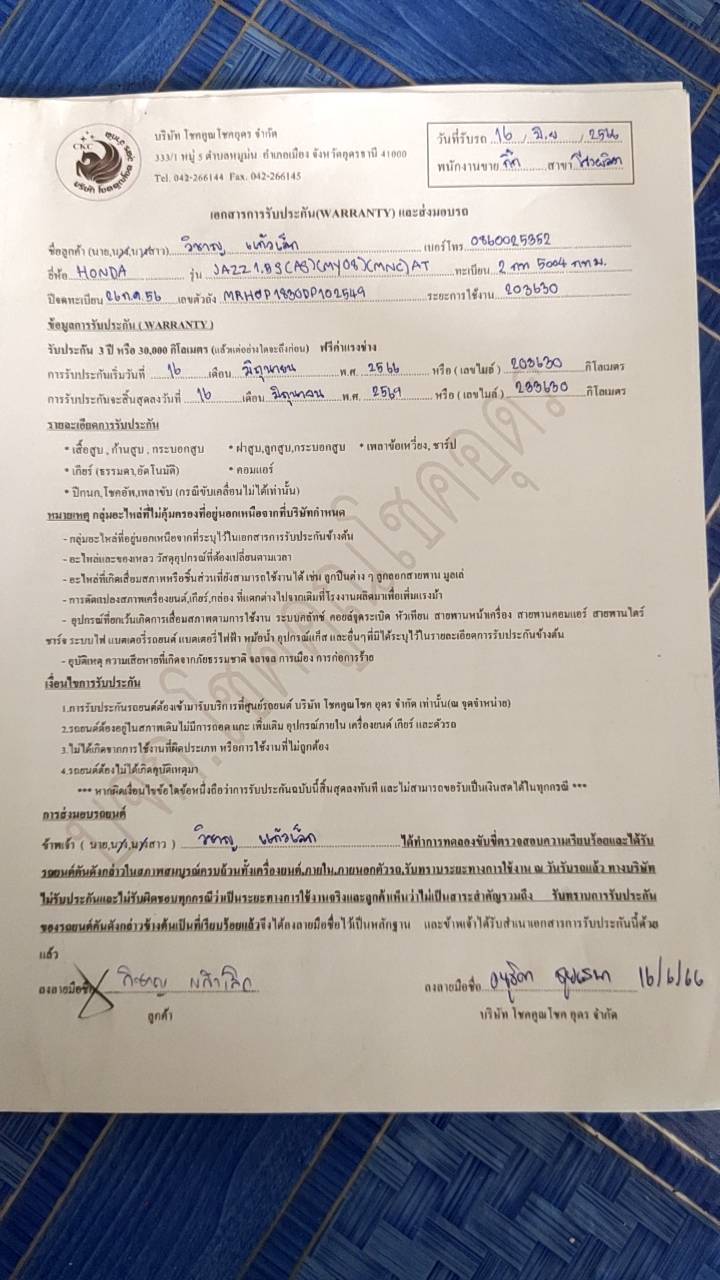 CKC
บริษัท โชคคูณโชคอุดร จำกัด
333/1 หมู่ 5 ตำบลหมูม่น อำเภอเมือง จังหวัดอุดรธานี 41000
Tel. 042-266144 Fax. 042-266145
วันที่รับรถ 16 / มิ.ย / 2566
พนักงานขาย กิ๊ก สาขา
เอกสารการรับประกัน(WARRANTY) และส่งมอบรถ
ชื่อลูกค้า (นาย,นาง,นางสาว) วิชาญ แก้วเล็ก เบอร์โทร 0860025352
ยี่ห้อ HONDA รุ่น JAZZ 1.3S (AS)(MY08)(MNC) AT ทะเบียน 2 กก 5004 กทม.
ปีจดทะเบียน 26 ก.ค. 56 เลขตัวถัง ระยะการใช้งาน 203630
ข้อมูลการรับประกัน ( WARRANTY )
รับประกัน 3 ปี หรือ 30,000 กิโลเมตร (แล้วแต่อย่างใดจะถึงก่อน) ฟรีค่าแรงช่าง
การรับประกันเริ่มวันที่ 16 เดือน มิถุนายน พ.ศ. 2566 หรือ ( เลขไมล์ ) 203630 กิโลเมตร
การรับประกันจะสิ้นสุดลงวันที่ 16 เดือน มิถุนายน พ.ศ. 2569 หรือ ( เลขไมล์ ) 233630 กิโลเมตร
รายละเอียดการรับประกัน
* เสื้อสูบ , ก้านสูบ , กระบอกสูบ * ฝาสูบ,ลูกสูบ,กระบอกสูบ * เพลาข้อเหวี่ยง, ชาร์ป
* เกียร์ (ธรรมดา,อัตโนมัติ) * คอมแอร์
* ปีกนก,โชคอัพ,เพลาขับ (กรณีขับเคลื่อนไม่ได้เท่านั้น)
หมายเหตุ กลุ่มอะไหล่ที่ไม่คุ้มครองที่อยู่นอกเหนือจากที่บริษัทกำหนด
- กลุ่มอะไหล่ที่อยู่นอกเหนือจากที่ระบุไว้ในเอกสารการรับประกันข้างต้น
- อะไหล่และของเหลว วัสดุอุปกรณ์ที่ต้องเปลี่ยนตามเวลา
- อะไหล่ที่เกิดเสื่อมสภาพหรือชิ้นส่วนที่ยังสามารถใช้งานได้ เช่น ลูกปืนต่าง ๆ ลูกลอกสายพาน มูเล่
- การดัดแปลงสภาพเครื่องยนต์,เกียร์,กล่อง ที่แตกต่างไปจากเดิมที่โรงงานผลิตมาเพื่อเพิ่มแรงม้า
- อุปกรณ์ที่ยกเว้นเกิดการเสื่อมสภาพตามการใช้งาน ระบบคลัทช์ คอยล์จุดระเบิด หัวเทียน สายพานหน้าเครื่อง สายพานคอมแอร์ สายพานไดร์
ชาร์จ ระบบไฟ แบตเตอรี่รถยนต์ แบตเตอรี่ไฟฟ้า หม้อน้ำ อุปกรณ์แก๊ส และอื่นๆ ที่มิได้ระบุไว้ในรายละเอียดการรับประกันข้างต้น
- อุบัติเหตุ ความเสียหายที่เกิดจากภัยธรรมชาติ จลาจล การเมือง การก่อการร้าย
เงื่อนไขการรับประกัน
1.การรับประกันรถยนต์ต้องเข้ามารับบริการที่ศูนย์รถยนต์ บริษัท โชคคูณโชค อุดร จำกัด เท่านั้น(ณ จุดจำหน่าย)
2.รถยนต์ต้องอยู่ในสภาพเดิมไม่มีการถอด แกะ เพิ่มเติม อุปกรณ์ภายใน เครื่องยนต์ เกียร์ และตัวรถ
3.ไม่ได้เกิดจากการใช้งานที่ผิดประเภท หรือการใช้งานที่ไม่ถูกต้อง
4.รถยนต์ต้องไม่ได้เกิดอุบัติเหตุมา
*** หากผิดเงื่อนไขข้อใดข้อหนึ่งถือว่าการรับประกันฉบับนี้สิ้นสุดลงทันที และไม่สามารถขอรับเป็นเงินสดได้ในทุกกรณี ***
การส่งมอบรถยนต์
ข้าพเจ้า ( นาย,นาง,นางสาว ) วิชาญ แก้วเล็ก ได้ทำการทดลองขับขี่ตรวจสอบความเรียบร้อยและได้รับ
รถยนต์คันดังกล่าวในสภาพสมบูรณ์ครบถ้วนทั้งเครื่องยนต์,ภายใน,ภายนอกตัวรถ,รับทราบระยะทางการใช้งาน ณ วันรับรถแล้ว ทางบริษัท
ไม่รับประกันและไม่รับผิดชอบทุกกรณีว่าเป็นระยะทางการใช้งานจริงและลูกค้าเห็นว่าไม่เป็นสาระสำคัญรวมถึง รับทราบการรับประกัน
ของรถยนต์คันดังกล่าวข้างต้นเป็นที่เรียบร้อยแล้วจึงได้ลงลายมือชื่อไว้เป็นหลักฐาน และข้าพเจ้าได้รับสำเนาเอกสารการรับประกันนี้ด้วย
แล้ว
ลงลายมือชื่อ วิชาญ แก้วเล็ก ลงลายมือชื่อ 16/6/66
ลูกค้า บริษัท โชคคูณ โชค อุดร จำกัด
บจก.โชคคูณโชคอุดร